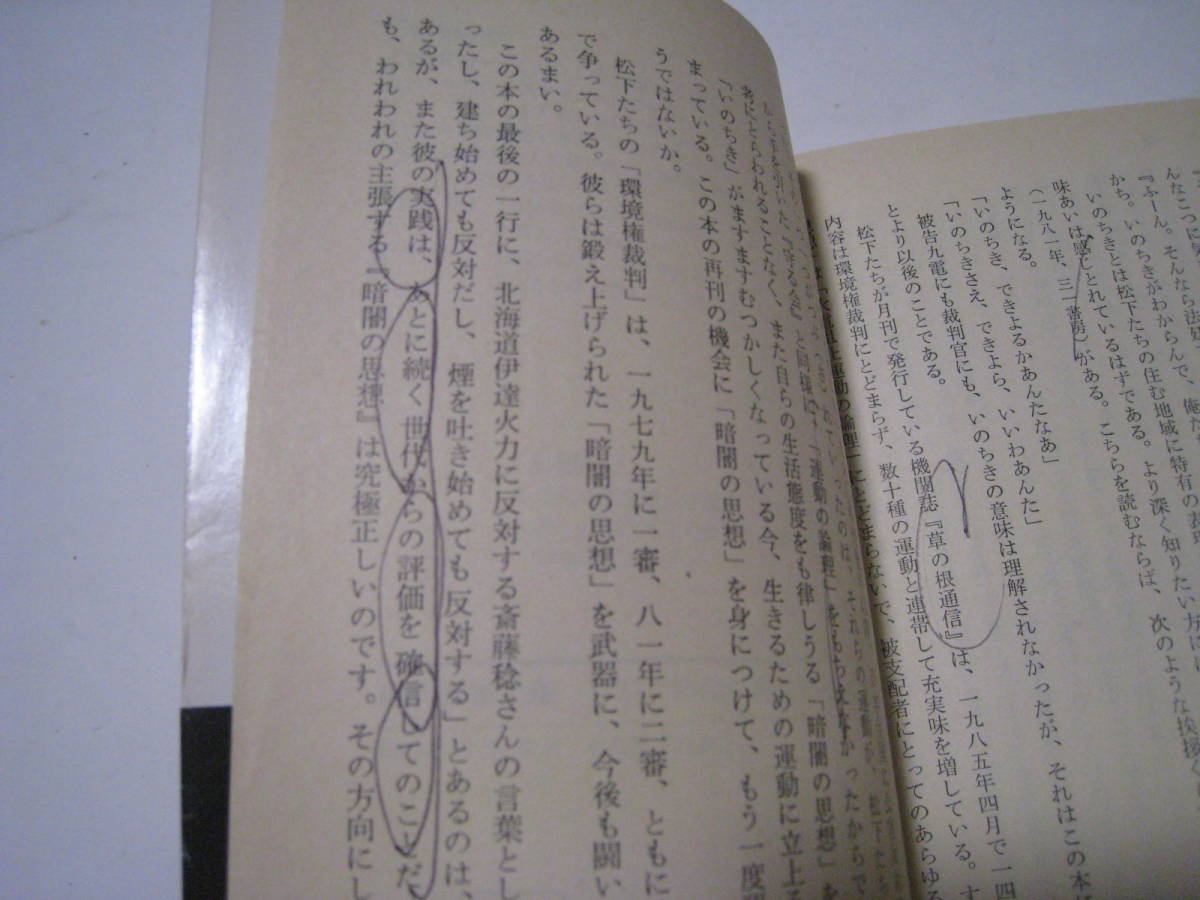 んなこつに
『ふーん。そんなら法
かち。いのちきがわからんで、俺だ
いのちきとは松下たちの住む地域に特有の
味あいは感じとれているはずである。より深く知りたい方に
（一九八一年、三一書房）がある。こちらを読むならば、次のような挨拶く
ようになる。
「いのちき、できよるかあんたなあ」
「いのちきさえ、できよら、いいわあんた」
被告九電にも裁判官にも、いのちきの意味は理解されなかったが、それはこの本
とより以後のことである。
松下たちが月刊で発行している機関誌『草の根通信』は、一九八五年四月で一四
内容は環境権裁判にとどまらず、数十種の運動と連帯して充実味を増している。す
にとどまらないで、被支配者にとってのあらゆる
と同様に、「運動の論理」をもちえなかったからで
者にとらわれることなく、また自らの生活態度をも律しうる「暗闇の思想」を
「いのちき」がますますむつかしくなっている今、生きるための運動に立上る
まっている。この本の再刊の機会に「暗闇の思想」を身につけて、もう一度
うではないか。
松下たちの「環境権裁判」は、一九七九年に一審、八一年に二審、ともに
で争っている。彼らは鍛え上げられた「暗闇の思想」を武器に、今後も闘い
あるまい。
この本の最後の一行に、北海道伊達火力に反対する斎藤稔さんの言葉とし
ったし、建ち始めても反対だし、煙を吐き始めても反対する」とあるのは、
あるが、また彼の実践は、あとに続く世代からの評価を確信してのことだ
も、われわれの主張する『暗闇の思想』は究極正しいのです。その方向にし